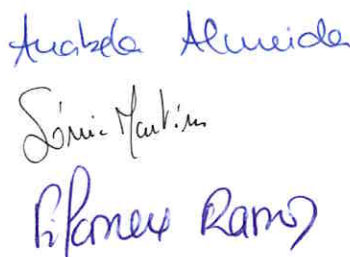 Anabela Almeida
Sónia Martins
Filomena Ramos